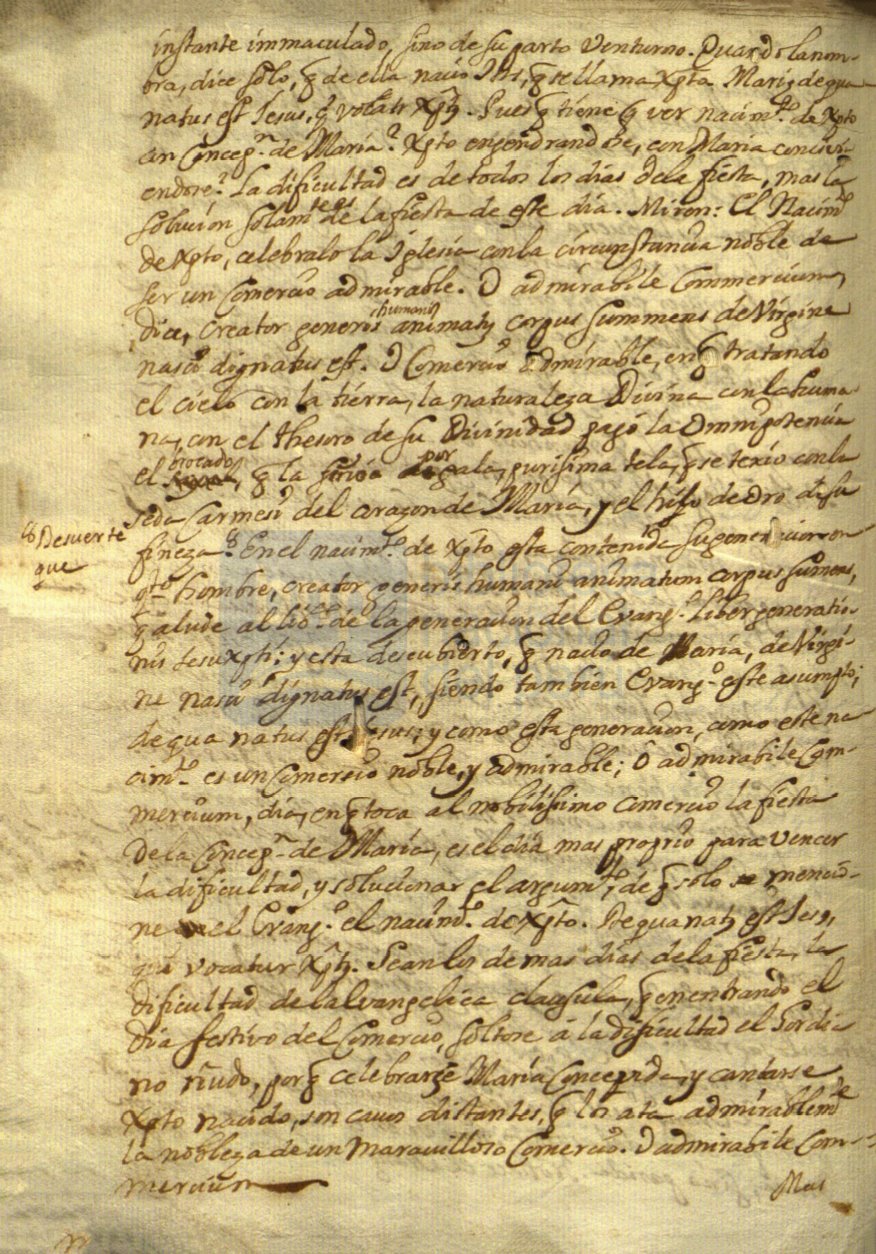 instante immaculado, sino de su parto Venturoso. Quando la nom-
bra, dice solo, q̃ de ella nacio Jhs, q̃ se llama Xpto. Mariæ de qua
natus est Jesus, q̃ vocatr Xp̃s. Pues q̃ tiene q̃ ver nacim.to de Xpto
con Concep.n de María? Xpto engendrandose, con María concivi-
endose? La dificultad es de todos los dias de la fiesta, mas la
solucion solam.te es de la fiesta de este dia. Miren: El Nacim.to
de Xpto, celebralo la Iglesia con la circunstancia noble de
ser un Comercio admirable. O admirabile Commercium,
dice, Creator generis humani animatũ corpus summens de Virgine
nasci dignatus est. O Comercio admirable, en q̃ tratando
el cielo con la tierra, la naturaleza Divina con la huma-
na, con el thesoro de su Divinidad pagó la Omnipotencia
el brocado, q̃ la por gala, purisima tela, q̃ se texio con la
seda Carmesi del corazon de María, y el hilo de oro de su
fineza. En el nacim.to de Xp̃to esta contenida su generacion en
q.to hombre, creator generis humani animatum corpus sumens,
q̃ alude al lib.o de la generacion del Evang.o Liber generatio-
nis Jesu Xpti; y esta descubierto, q̃ nacio de María, de Virgi-
ne nasci dignatus est, siendo tambien Evang.o este asumpto;
de qua natus est Jesus; y como esta generacion, como este na-
cim.to es un Comercio noble, y admirable; O admirabile Com-
mercium, dia, en q̃ toca al nobilissimo comercio la fiesta
de la Concep.n de María, es el dia mas proprio para vencer
la dificultad, y solucionar el argum.to, de q̃ solo mencio-
ne el Evang.o el nacim.to de Xp̃to. De qua natus est Jesus,
qui vocatur Xp̃s. Sean los de mas dias de la fiesta, la
dificultad de la Evangelica clausula, q̃ en entrando el
dia festivo del Comercio, soltose a la dificultad el Gordia-
no ñudo, por q̃ celebrarse María Concepida, y cantarse
Xpto nacido, son cavos distantes, q̃ los ata admirablem.te
la nobleza de un maravilloso Comercio. O admirabile Com-
mercium
Mas
Desuerte
que